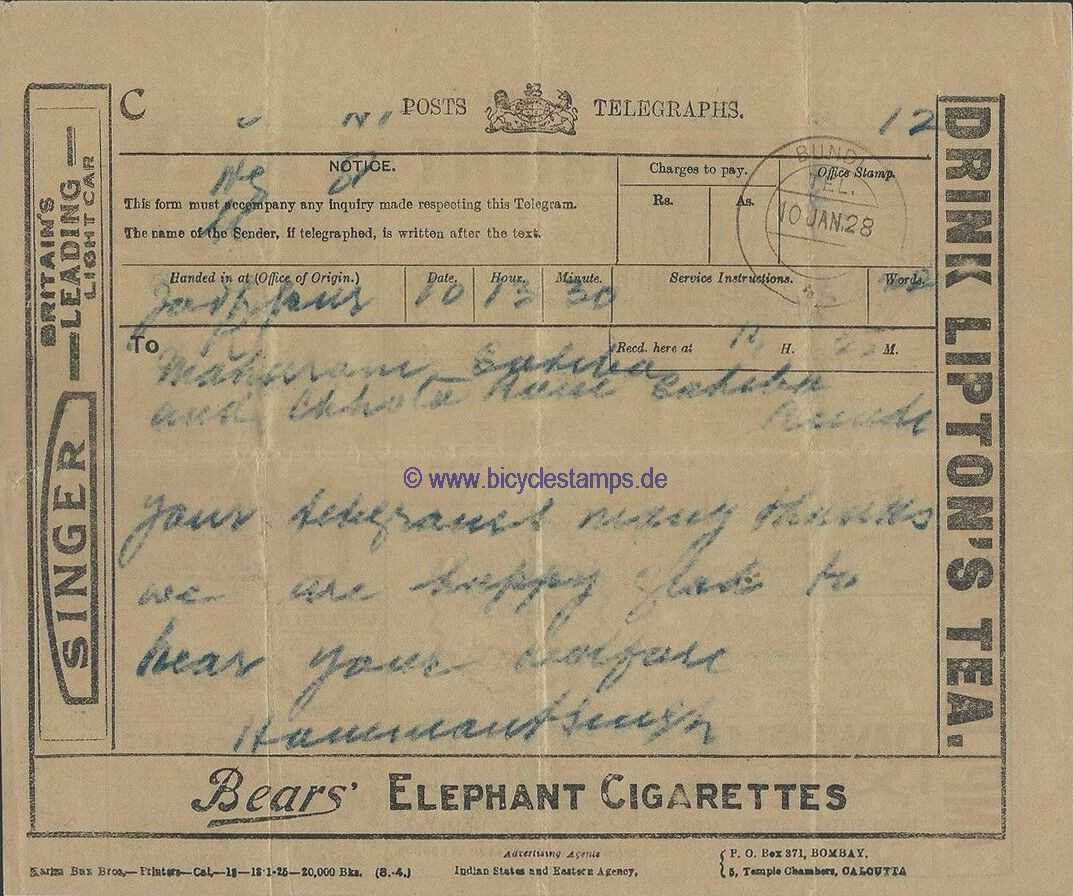 C POSTS TELEGRAPHS. 12
NOTICE.
This form must accompany any inquiry made respecting this Telegram.
The name of the Sender, if telegraphed, is written after the text.
Charges to pay.
Rs. As.
Office Stamp.
BUNDI
TEL.
10 JAN.28
Handed in at (Office of Origin.) Date. Hour. Minute. Service Instructions. Words.
Jodhpur 10 13 30
To
Recd. here at H. M.
Maharani Sahiba
and Chhota Sahiba
Bundi
© www.bicyclestamps.de
your telegrams many thanks
we are happy glad to
hear your welfare
Hanumantsingh
BRITAIN'S
LEADING
LIGHT CAR
SINGER
DRINK LIPTON'S TEA.
Bears' ELEPHANT CIGARETTES
Karim Bux Bros,—Printers—Cal,—13—13-1-25—20,000 Bks. (S.-4.)
Advertising Agents
Indian States and Eastern Agency,
P. O. Box 371, BOMBAY.
5, Temple Chambers, CALCUTTA